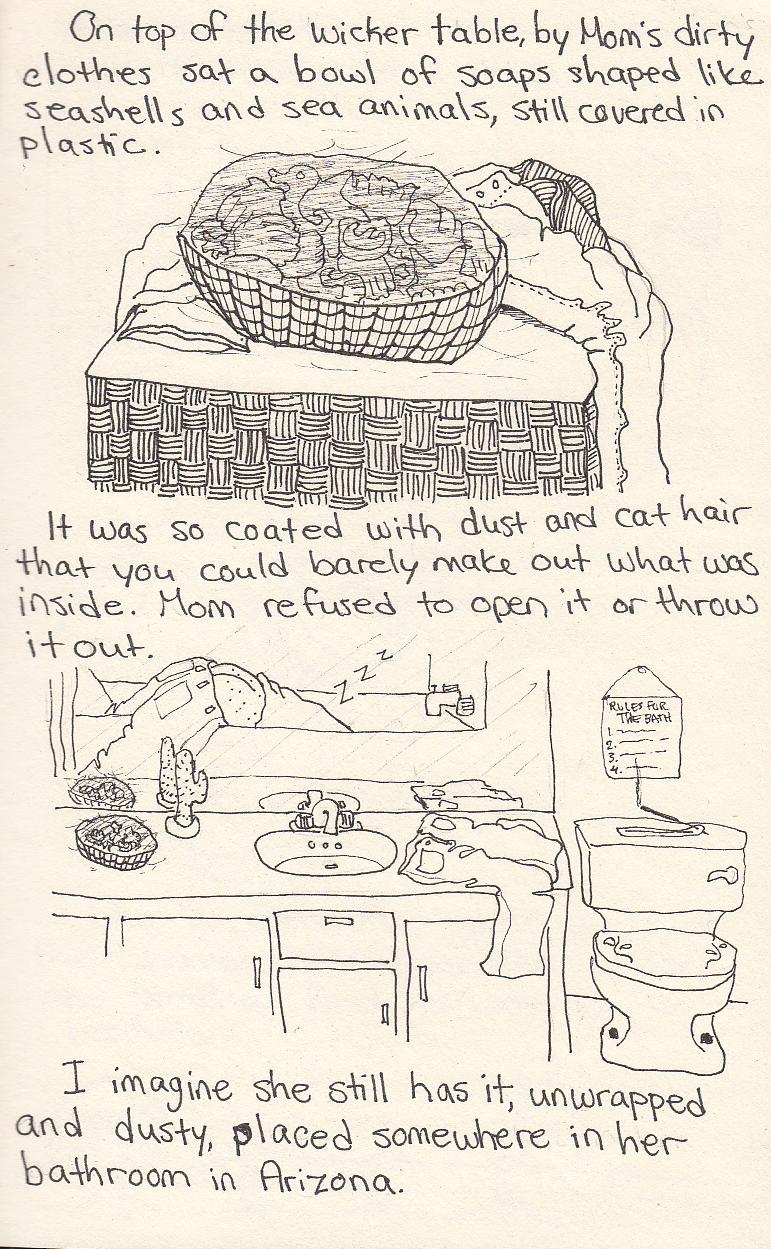 On top of the wicker table, by Mom's dirty
clothes sat a bowl of soaps shaped like
seashells and sea animals, still covered in
plastic.
It was so coated with dust and cat hair
that you could barely make out what was
inside. Mom refused to open it or throw
it out.
z z z
RULES FOR
THE BATH
1.
2.
3.
4.
I imagine she still has it, unwrapped
and dusty, placed somewhere in her
bathroom in Arizona.